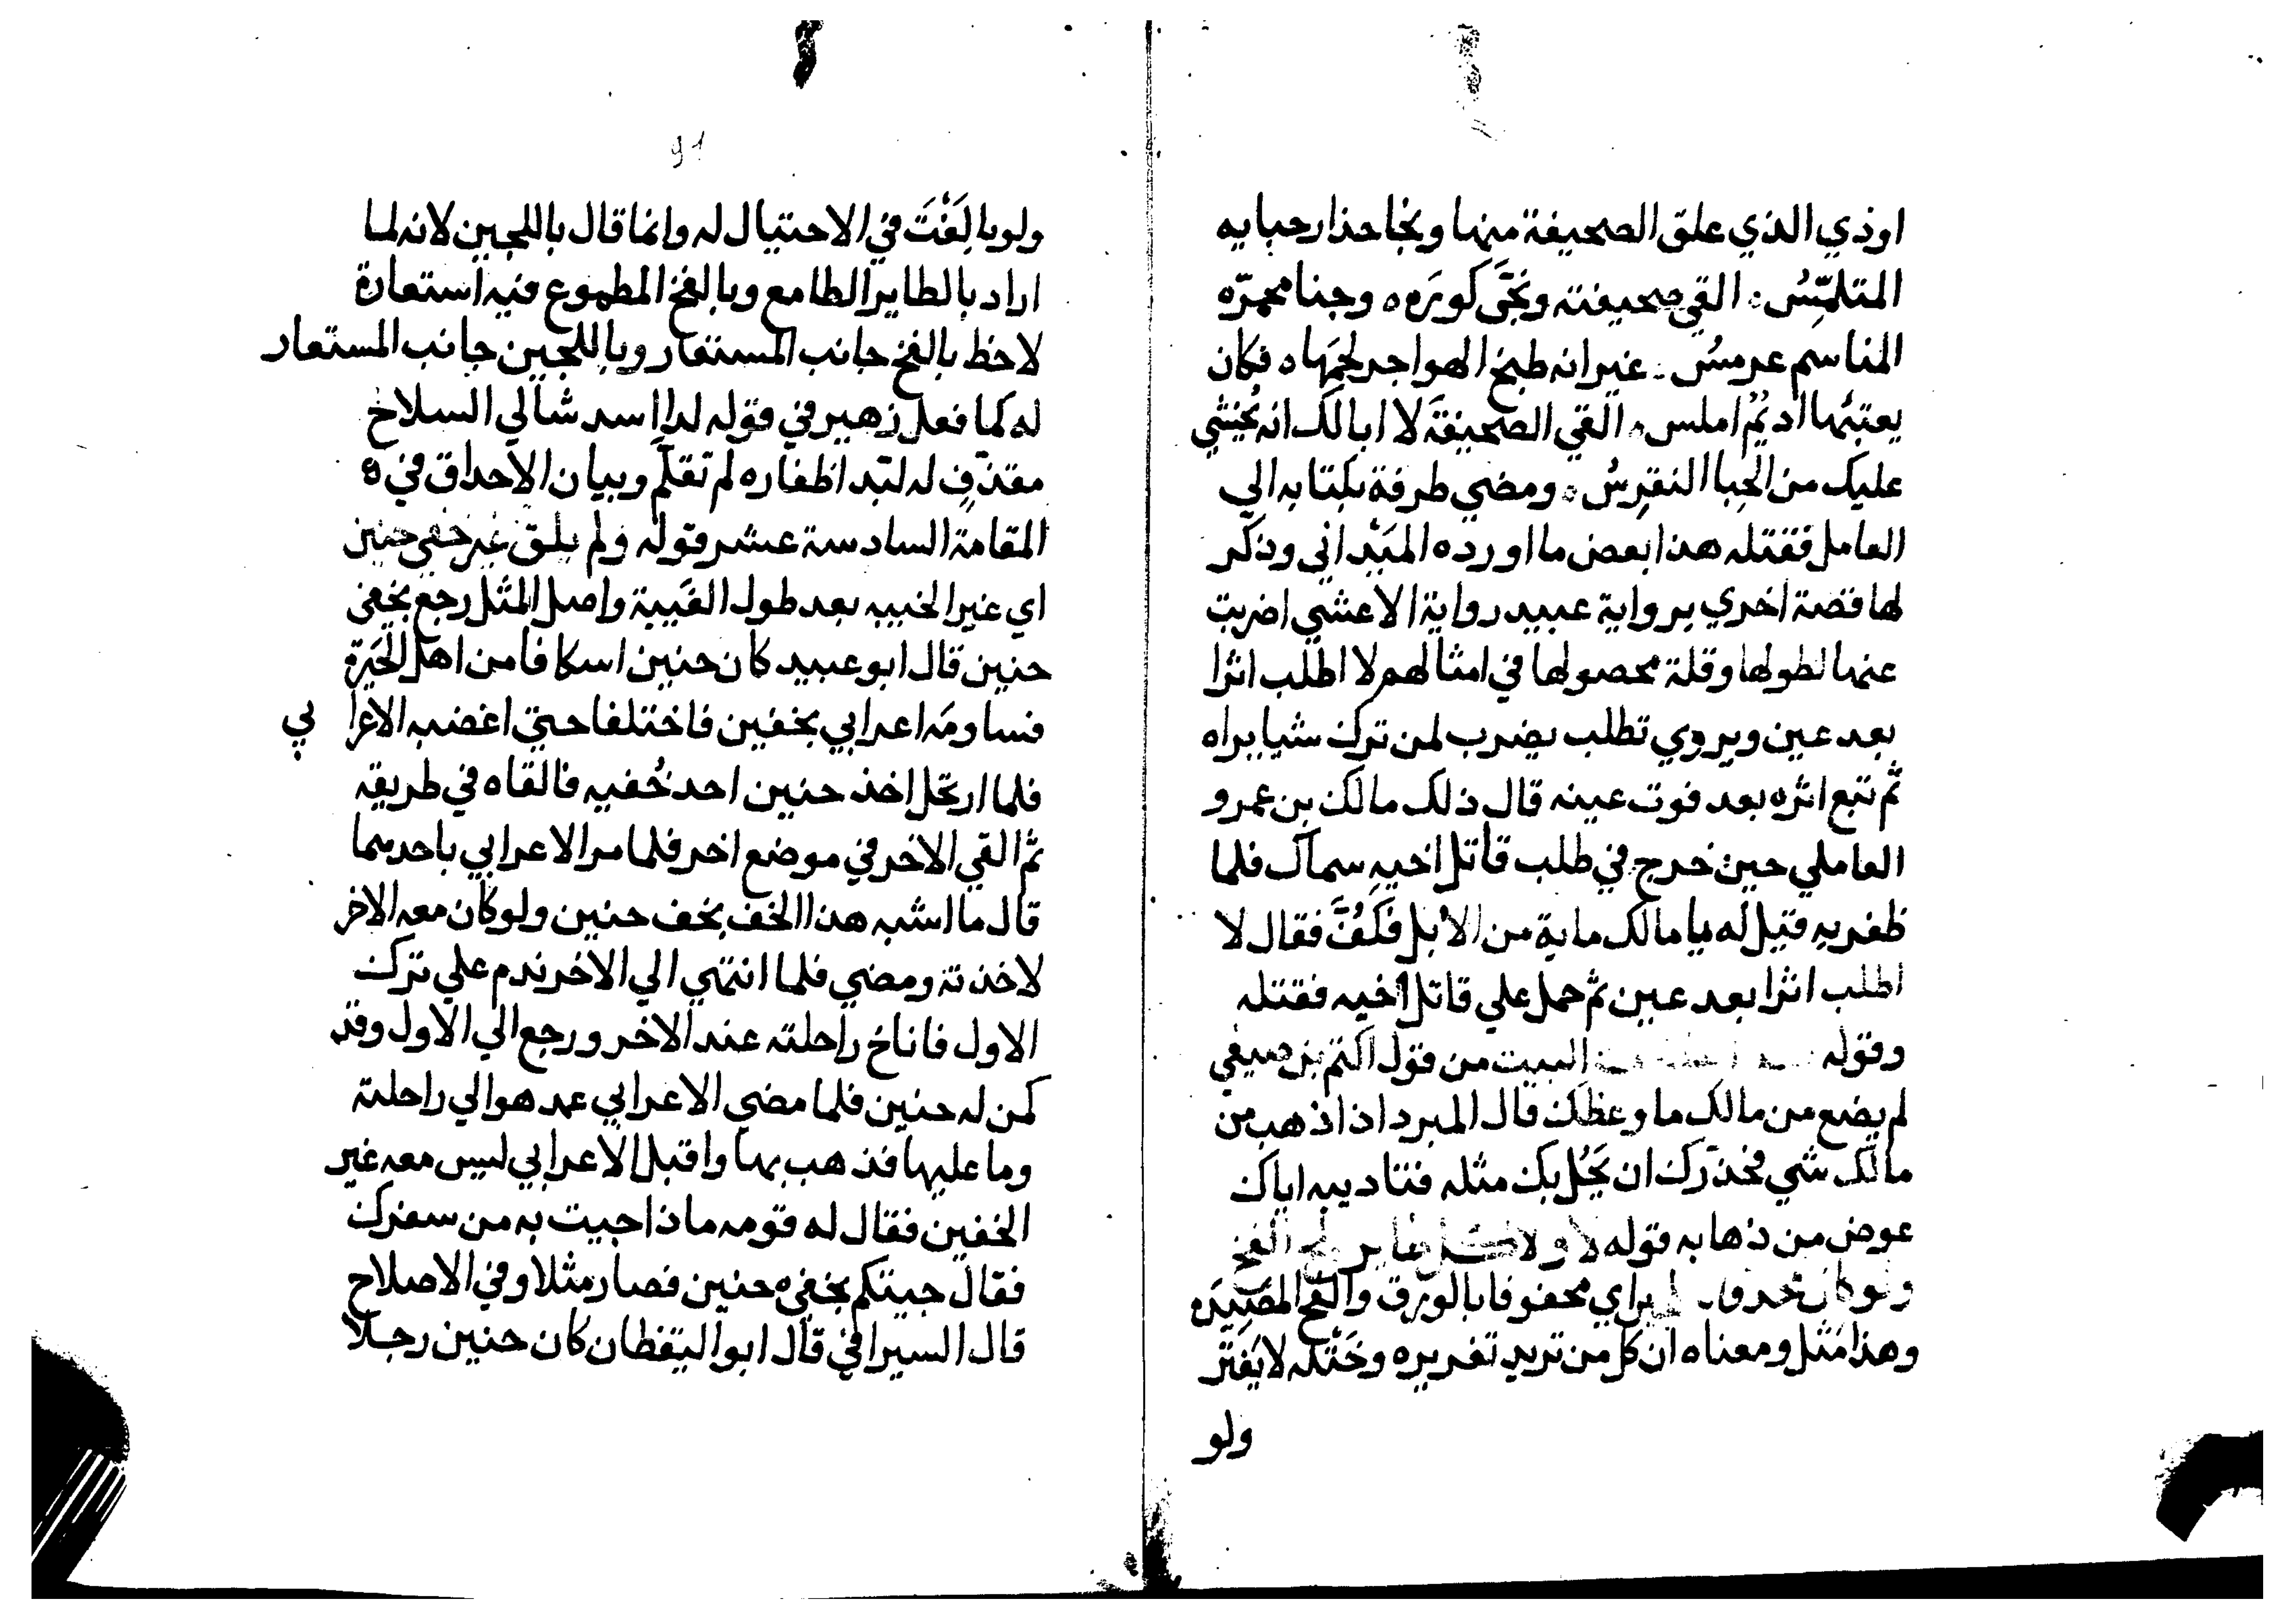 اوذي الذي علق الصحيفة منها ونجا حذار حبايه
المتلمِّسُ ه القي صحيفته ونجَّي كورَه ه وجنا مجمرّه
المناسم عرمسُ ه غير انه طبخ الهواجر لحمَها ه فكان
يعتبُها اديُم املس ه القي الصحيفةَ لا ابا لك انه يُخشي
عليك من الحِبا النقرِسُ ه ومضي طرفة بكتابه الي
العامل فقتله هذا بعض ما اورده المَيْداني وذكر
لها قصة اخري برواية عبيد رواية الاعشي اضربت
عنها لطولها وقلة محصولها في امثالهم لا اطلب اثرا
بعد عين ويروي تطلب يضرب لمن ترك شيا يراه
ثم تتبع اثره بعد فوت عينه قال ذلك مالك بن عمرو
العاملي حين خرج في طلب قاتل اخيهِ سماك فلما
ظفر به قيل له يا مالك ماية من الابل فَكُفَّ فقال لا
اطلب اثرا بعد عين ثم حمل علي قاتل اخيه فقتله
وقوله البيت من قول اكثم بن صيفي
لم يضع من مالك ما وعظك قال المبرد اذا ذهب من
مالك شي فحذّرك ان يَحُل بك مثله فتاديبه اياك
عوض من ذهابه قوله لا ولا كل طاير يلج الفخ
ولو كان محدقا اي محفوفا بالورق والفخ المصَيَده
وهذا مَثل ومعناه ان كل من تريد تغريره وخَتْله لا يَغترّ
ولو
91
ولو بالَغْتَ في الاحتيال له وانما قال باللجين لانه لما
اراد بالطاير الطامع وبالفخ المطموع فيه استعارة
لاحظ بالفخ جانب المستعار وباللجين جانب المستعار
له كما فعل زهير في قوله لدا اسد شاكي السلاح
مقذّفٍ له لبد اظفاره لم تقلّم وبيان الاحداق في ه
المقامة السادسة عشر قوله ولم يلق غير خفي حنين
اي غير الخيبه بعد طول الغَيبة واصل المثل رجع بخفي
حنين قال ابو عبيد كان حنين اسكافا من اهل الحَيَرة
فساومَه اعرابي بخفين فاختلفا حتي اغضبه الاعرا بي
فلما ارتحل اخذ حنين احد خُفيه فالقاه في طريقه
ثم القي الاخر في موضع اخر فلما مر الاعرابي باحدهما
قال ما اشبه هذا الخف بخف حنين ولو كان معه الاخر
لاخذته ومضي فلما انتهي الي الاخر ندم علي ترك
الاول فاناخ راحلته عند الاخر ورجع الي الاول وقد
كمن له حنين فلما مضي الاعرابي عمد هو الي راحلته
وما عليها فذهب بها واقبل الاعرابي ليس معه غير
الخفين فقال له قومه ماذا جيت به من سفرك
فقال جيتكم بخفي ه حنين فصار مثلا وفي الاصلاح
قال السيرافي قال ابو اليقظان كان حنين رجلا